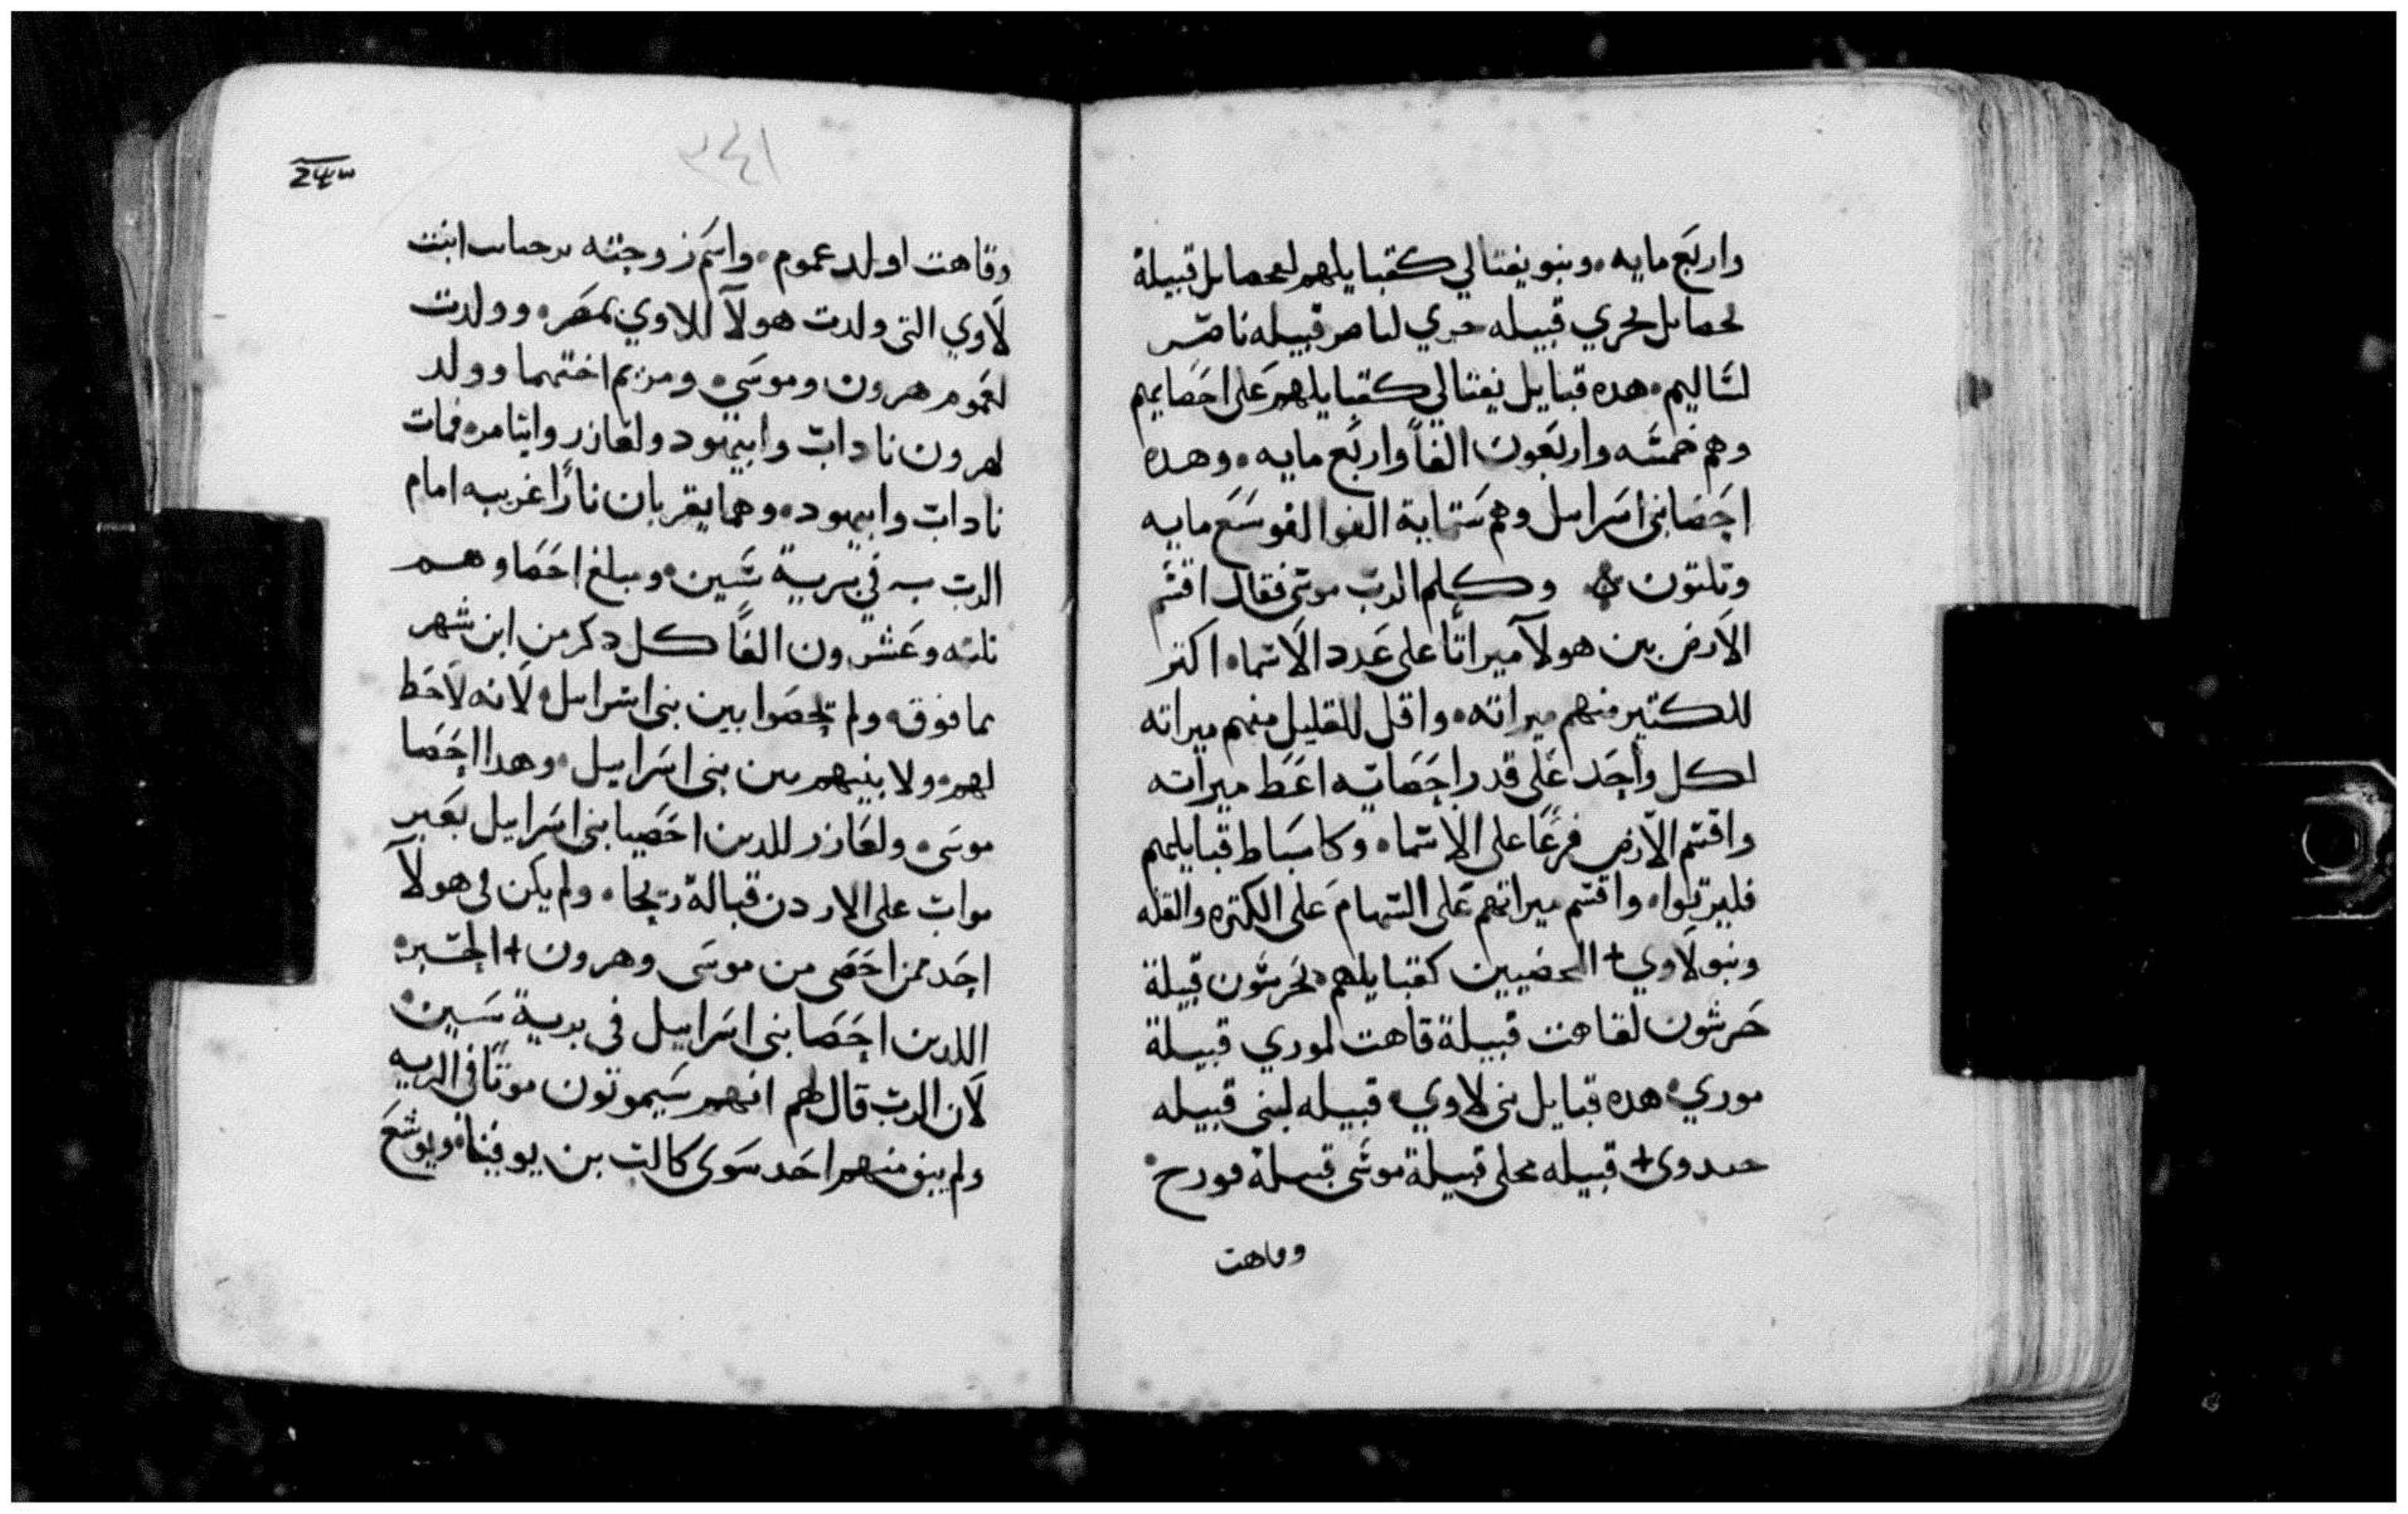 واربع مايه وبنو يفتالي كقبايلهم لمحصايل قبيلة
لحصايل لحري قبيله حري لناصر قبيله ناصر
لشاليم هده قبايل نفتالي كقبايلهم على احصايهم
وهم خمسه واربعون الفاً واربع مايه وهده
احصا بني اسراييل وهم ستماية الف والف وسبع مايه
وتلتون وكلم الرب موسى فقال اقسم
الارض بين هولآ ميراثاً على عدد الاسما اكتر
للكتير منهم ميراته واقل للقليل منهم ميراته
لكل واحد على قدر احصايه اعط ميراته
واقسم الارض فرعاً على الاسما وكاسباط قبايلهم
فليرتوا واقسم ميراتهم على السهام على الكتره والقله
وبنو لاوي + المحصيين كقبايلهم لحرشون قبيلة
حرشون لقاهت قبيلة قاهت لموري قبيلة
موري هده قبايل بني لاوي قبيله لبني قبيله
حبدوى + قبيله محلي قبيلة موسى قبيلة قورح
وقاهت
٢٤١
24٣
وقاهت اولد عموم واسم زوجته ابنت
لاوي التى ولدت هولآ للاوي بمصر وولدت
لعموم هرون وموسى ومريم اختهما وولد
لهرون ناداب وابيهود ولعازر وايتامر فمات
ناداب وابيهود وهما يقربان ناراً غريبه امام
الرب في برية سين ومبلغ احصاوهم
تلته وعشرون الفاً كل دكر من ابن شهر
فما فوق ولم يحصوا بين بني اسراييل لانه لاحط
لهم ولا بينهم بين بني اسراييل وهدا احصا
موسى ولعازر للدين احصيا بني اسراييل بعبر
مواب على الاردن قبالة ريحا ولم يكن في هولآ
احد ممن احصى من موسى وهرون + الحبر
اللدين احصا بني اسراييل في برية سين
لان الرب قال لهم انهم سيموتون موتاً في البريه
ولم يبق منهم احد سوى كالب بن يوفينا ويوشع